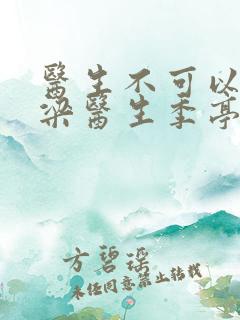 醫生不可以
梁醫生季亭
方碧瑤
未經同意禁止轉載